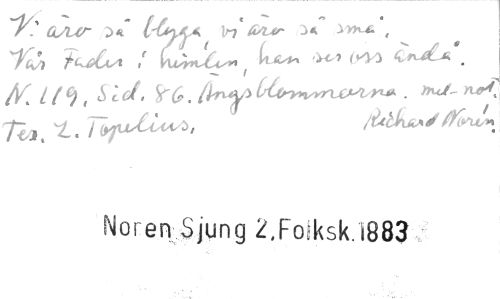 Vi äro så blyga, vi äro så små,
Vår Fader i himlen, han ser oss ändå.
N. 119. Sid. 86. Ängsblommorna. mel-not.
Tex. Z. Topelius.
Richard Norén.
Noren Sjung 2.Folksk.1883